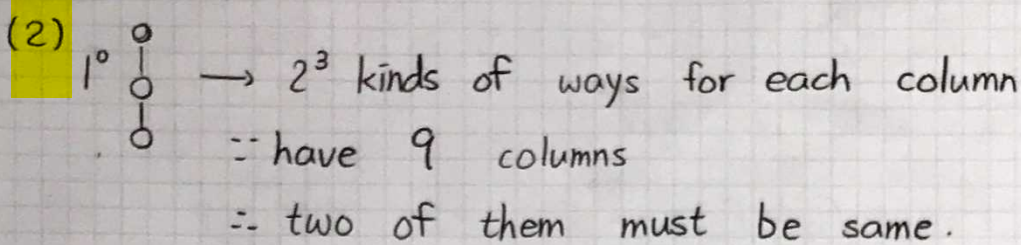 (2) 1° → 2³ kinds of ways for each column
∵ have 9 columns
∴ two of them must be same.